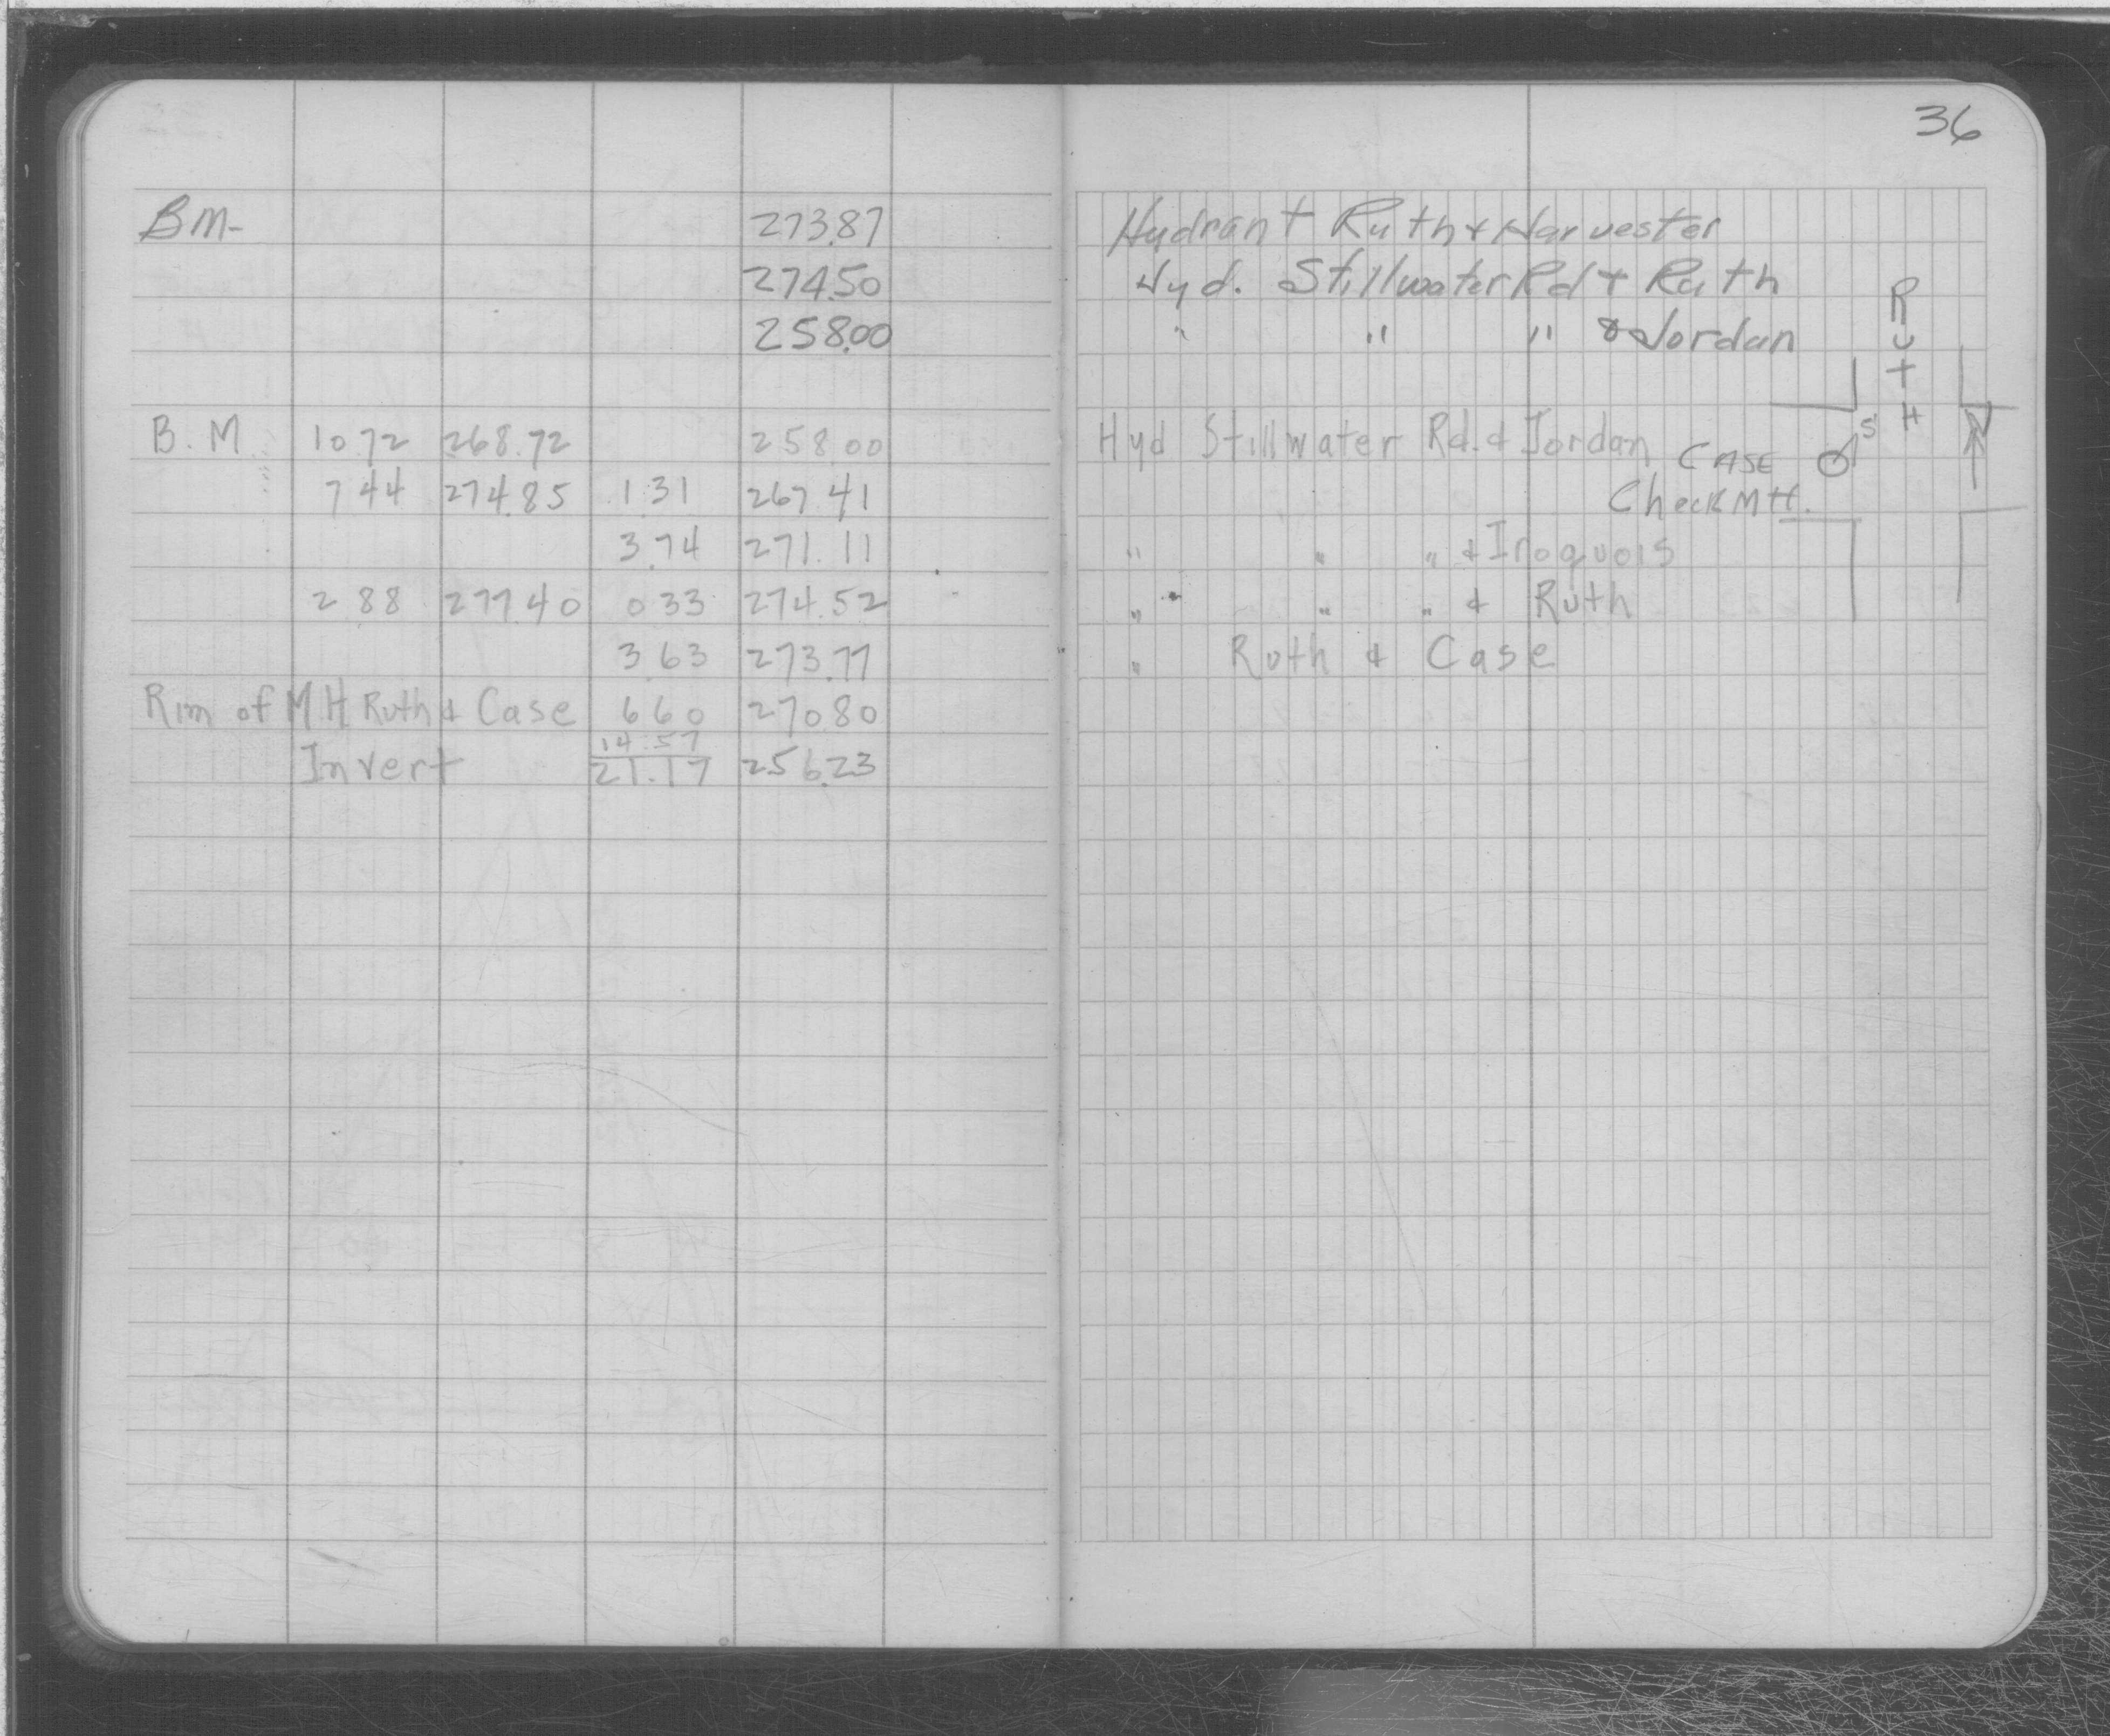 36
BM- 273.87 Hydrant Ruth & Harvester
274.50 Hyd. Stillwater Rd & Ruth
258.00 " " " & Jordan
RUTH
B.M 10.72 268.72 258.00 Hyd Stillwater Rd. & Jordan
CASE S N
7 44 274.85 1.31 267.41 Check MH.
3.74 271.11 " " " & Iroquois
2 88 277.40 0 33 274.52 " " " & Ruth
3 63 273.77 " Ruth & Case
Rim of MH Ruth & Case 6 60 270.80
14.57
Invert 21.17 256.23